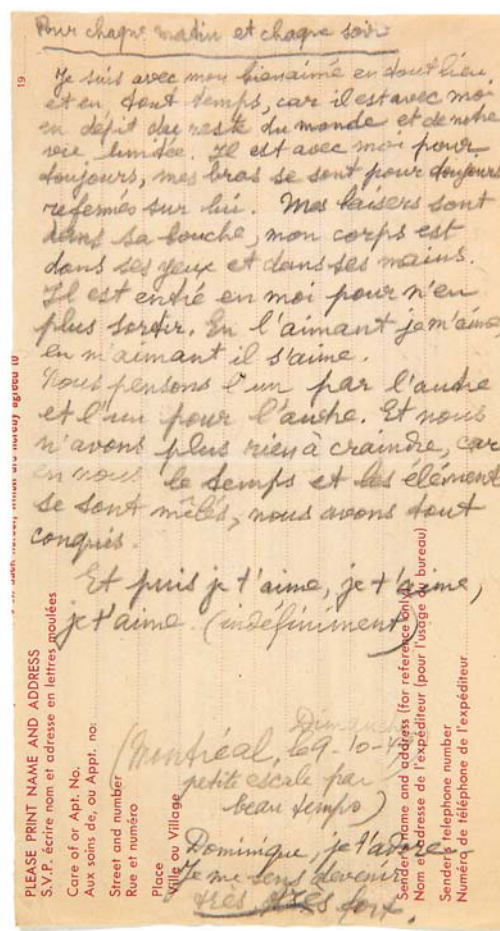 Pour chaque matin et chaque soir
Je suis avec mon bienaimé en tout lieu
et en tout temps, car il est avec moi
en dépit du reste du monde et de notre
vie limitée. Il est avec moi pour
toujours, mes bras se sont pour toujours
refermés sur lui. Mes baisers sont
dans sa bouche, mon corps est
dans ses yeux et dans ses mains.
Il est entré en moi pour n'en
plus sortir. En l'aimant je m'aime,
en m'aimant il s'aime.
Nous pensons l'un par l'autre
et l'un pour l'autre. Et nous
n'avons plus rien à craindre, car
en nous le temps et les élément
se sont mêlés, nous avons tout
conquis.
Et puis je t'aime, je t'aime,
je t'aime. (indéfiniment)
Dimanche
(Montréal, le 9-10-4
petite escale par
beau temps)
Dominique, je t'adore
Je me sens devenir
très, très fort.
19
hereby agreed to
PLEASE PRINT NAME AND ADDRESS
S.V.P. écrire nom et adresse en lettres moulées
Care of or Apt. No.
Aux soins de, ou Appt. no:
Street and number
Rue et numéro
Place
Ville ou Village
Sender's name and address (for reference only)
Nom et adresse de l'expéditeur (pour l'usage du bureau)
Sender's telephone number
Numéro de téléphone de l'expéditeur